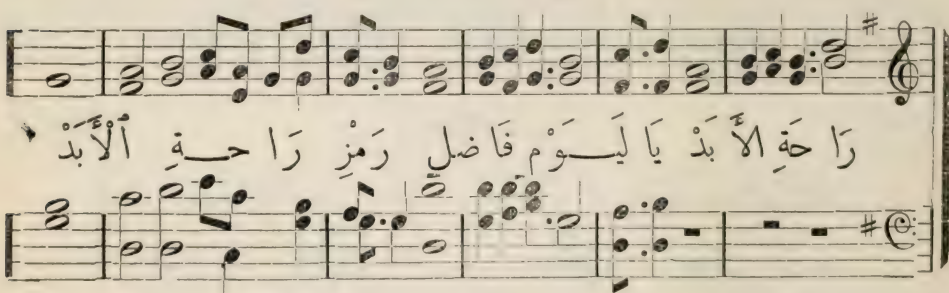 رَا حَةِ الأَّ بَدْ يَا لَيَـــوْمٍ فَاضلٍ رَمْزِ رَا حـــةِ ٱلْأَبَدْ